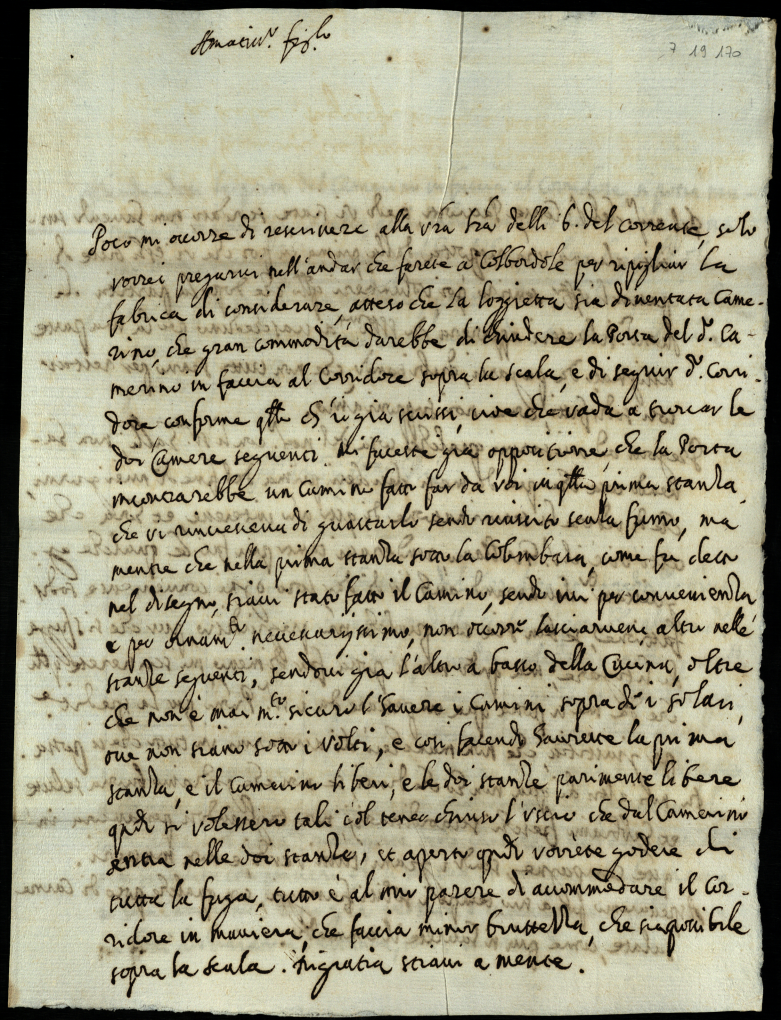 Amatiss.º figl.lo
7 19 170
Poco mi occorre di rescrivere alla vra tra delli 6. del corrente, solo
vorrei pregarvi nell'andar che farete a Colbordole per ripigliar la
fabrica di considerare, atteso che la loggietta sia diventata Came-
rino, che gran commodità darebbe di chiudere la Porta del d.º Ca-
merino in faccia al Corridore sopra la scala, e di seguir d.º Corri-
dore conforme qto ch'io già scrissi, cioè che vada a trovar le
doi Camere seguenti. Mi faceste già oppositione, che la Porta
incontrarebbe un Camino fatto far da voi in qlla prima stanza,
che vi rincresceva di guastarlo sendo riuscito senza fumo, ma
mentre che nella prima stanza sotto la Colombara, come fu detto
nel disegno, siavi stato fatto il Camino, sendo ivi per convenienza
e per ornam.to necessarijssimo, non occorre lasciarvene altri nelle
stanze seguenti, sendovi già l'altro a basso della Cucina, oltre
che non è mai m.to sicuro l'havere i Camini sopra di i solari,
ove non siano sotto i volti, e così facendo haverete la prima
stanza, e il Camerino liberi, e le doi stanze parimente libere
qndo si volessero tali col tener chiuso l'uscio che dal Camerino
entra nelle doi stanze, et aperto qndo vorrete godere di
tutta la fuga, tutto è al mio parere di accommodare il Cor-
ridore in maniera, che faccia minor bruttezza, che sia possibile
sopra la scala. In gratia stiavi a mente.